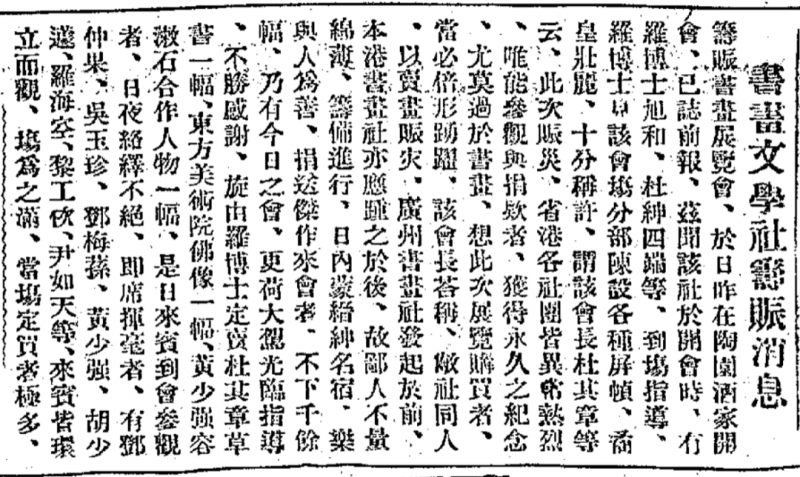 書畫文學社籌賑消息
籌賑書畫展覽會、於日昨在陶園酒家開
會、已誌前報、茲聞該社於開會時、有
羅博士旭和、杜紳四端等、到塲指導、
羅博士見該會塲分部陳設各種屏幀、喬
皇壯麗、十分稱許、謂該會長杜其章等
云、此次賑災、省港各社團皆異常熱烈
、唯能參觀與捐欵者、獲得永久之紀念
、尤莫過於書畫、想此次展覽購買者、
當必倍形踴躍、該會長荅稱、敝社同人
、以賣畫賑灾、廣州書畫社發起於前、
本港書畫社亦應踵之於後、故鄙人不量
綿薄、籌備進行、日內蒙縉紳名宿、樂
與人爲善、捐送傑作來會者、不下千餘
幅、乃有今日之會、更荷大駕光臨指導
、不勝感謝、旋由羅博士定賣杜其章草
書一幅、東方美術院佛像一幅、黃少强容
漱石合作人物一幅、是日來賓到會參觀
者、日夜絡繹不絕、即席揮毫者、有鄧
仲果、吳玉珍、鄧梅蓀、黃少强、胡少
蘧、羅海空、黎工佽、尹如天等、來賓皆環
立而觀、塲爲之滿、當塲定買者極多、